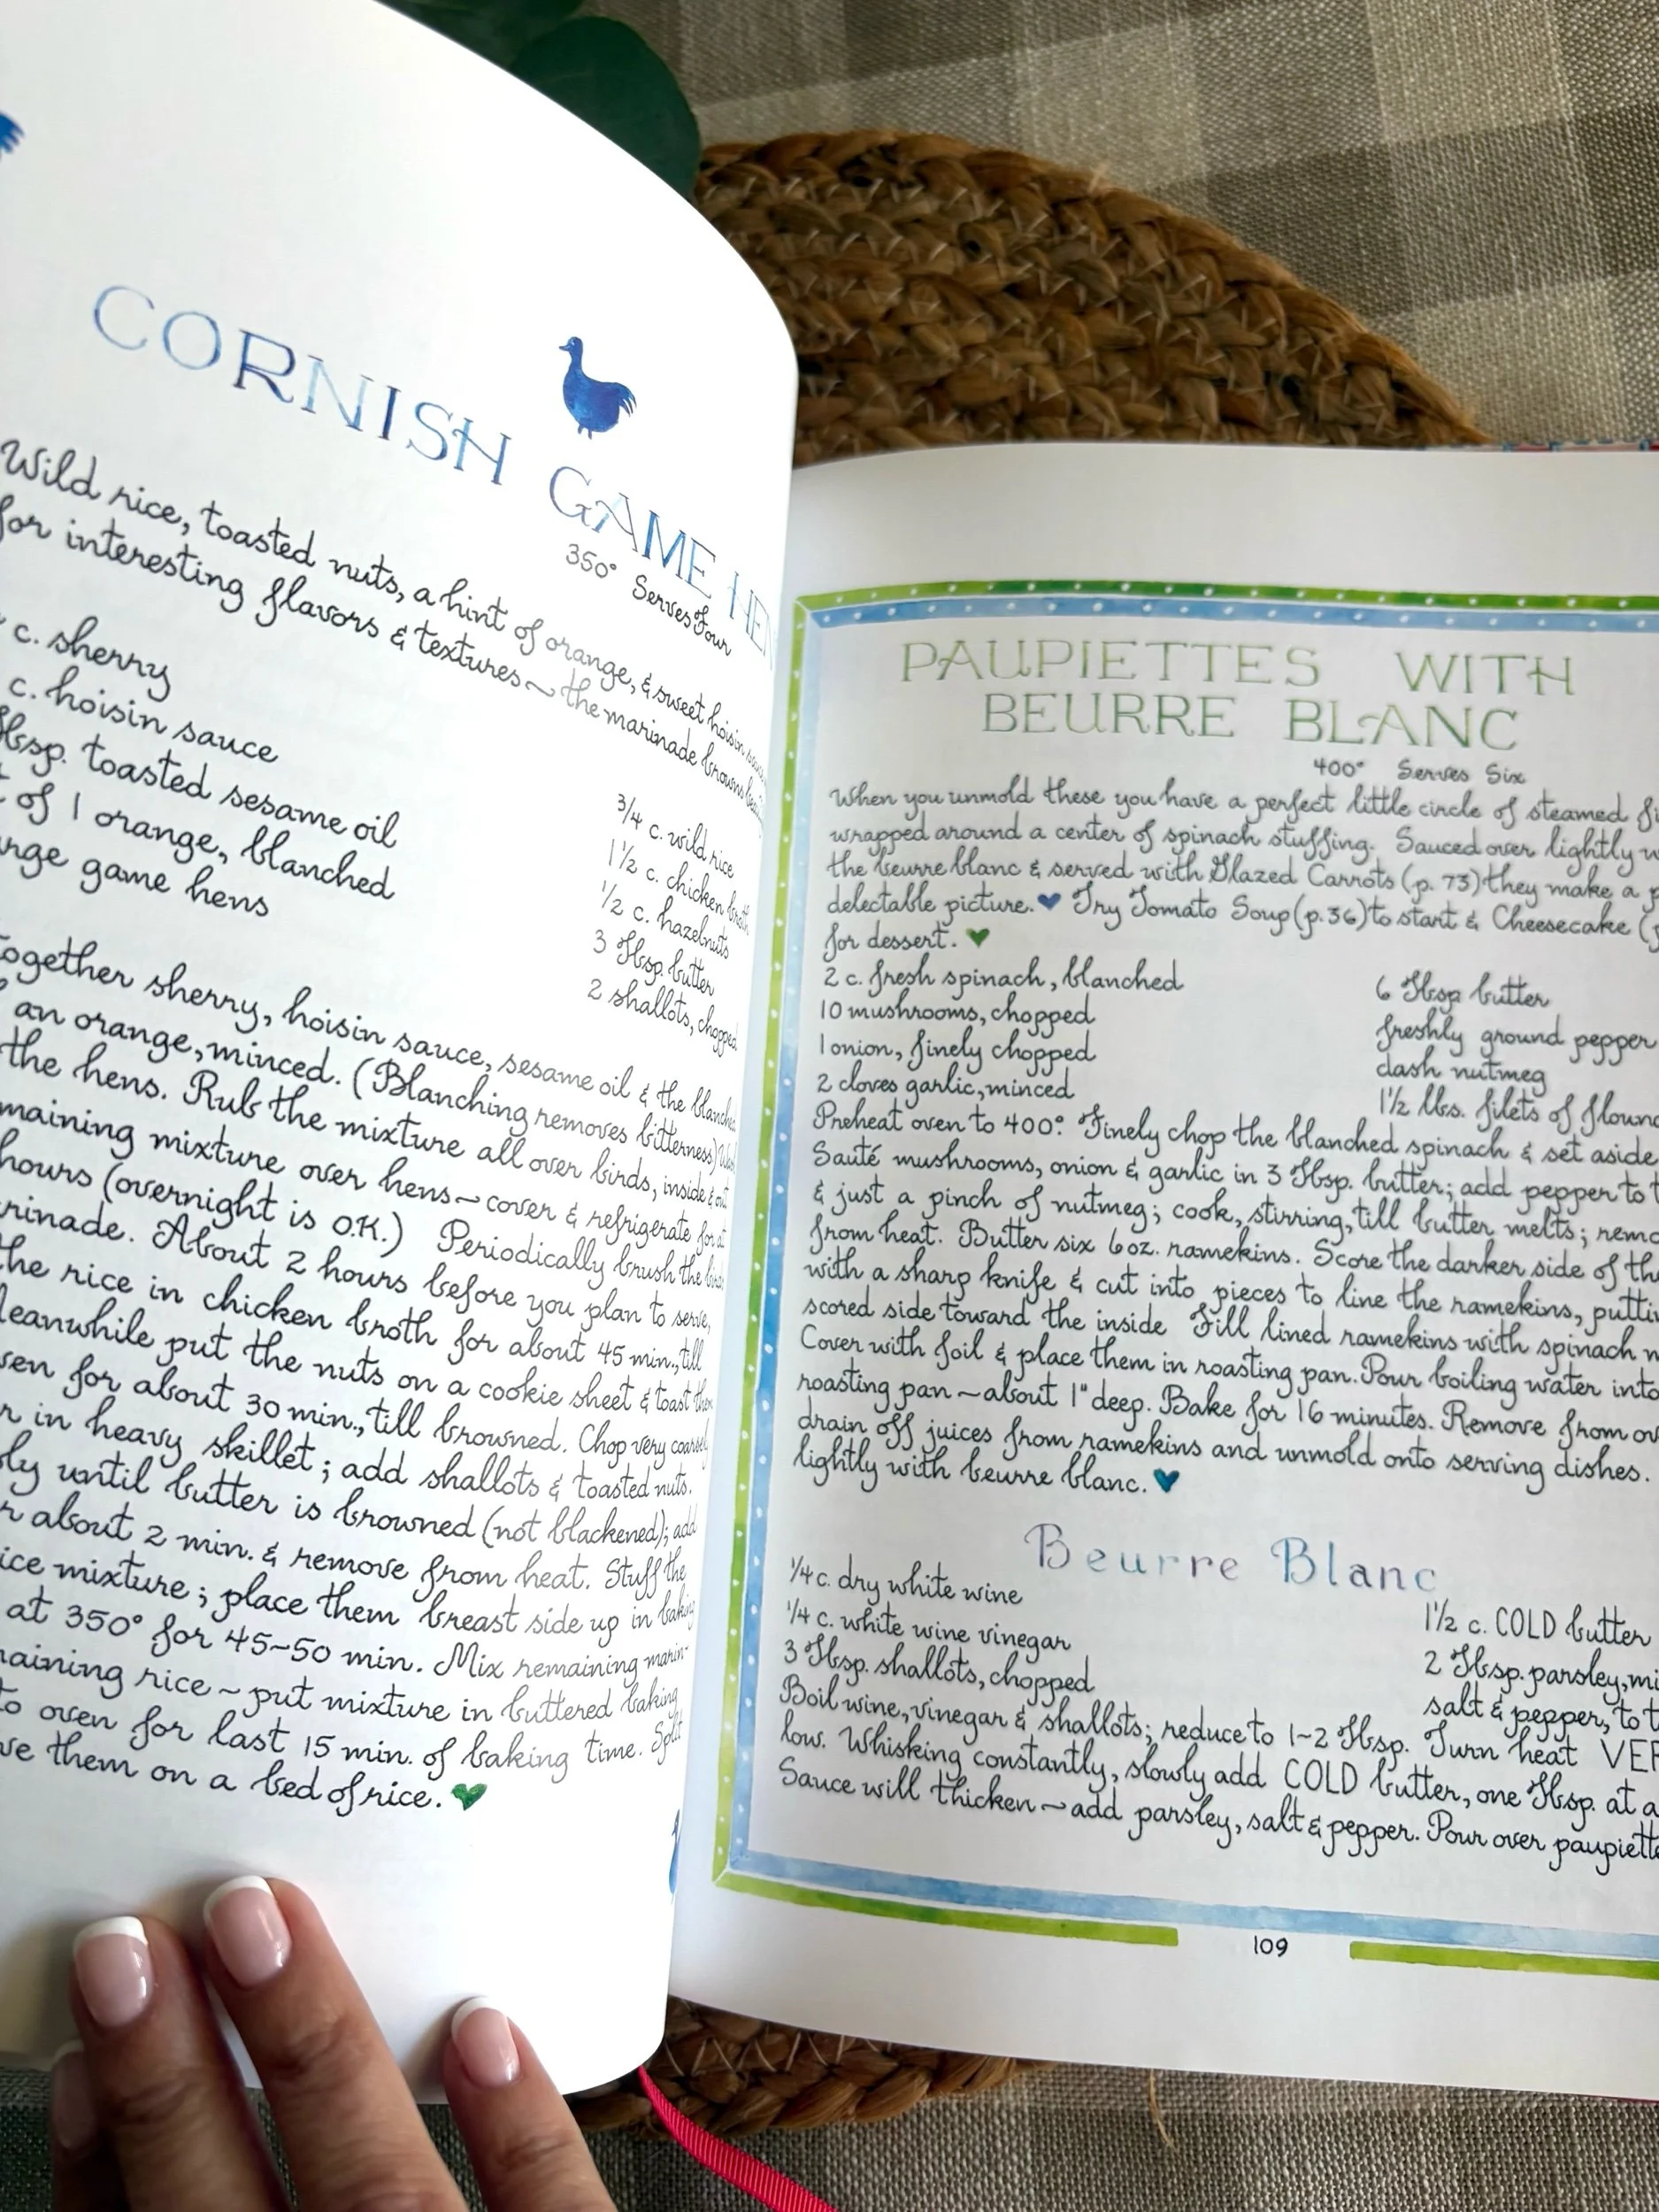 CORNISH GAME HEN
350° Serves Four
Wild rice, toasted nuts, a hint of orange, & sweet hoisin
for interesting flavors & textures ~ the marinade browns
c. sherry
c. hoisin sauce
toasted sesame oil
of 1 orange, blanched
game hens
3/4 c. wild rice
1 1/2 c. chicken broth
1/2 c. hazelnuts
3 Tbsp. butter
2 shallots, chopped
together sherry, hoisin sauce, sesame oil & the blanched
an orange, minced. (Blanching removes bitterness)
the hens. Rub the mixture all over birds, inside & out
mixture over hens ~ cover & refrigerate for at
hours (overnight is O.K.) Periodically brush the
About 2 hours before you plan to serve,
the rice in chicken broth for about 45 min., till
put the nuts on a cookie sheet & toast
for about 30 min., till browned. Chop very coarsely
in heavy skillet; add shallots & toasted nuts.
until butter is browned (not blackened); add
about 2 min. & remove from heat. Stuff the
mixture; place them breast side up in baking
at 350° for 45~50 min. Mix remaining marin-
rice ~ put mixture in buttered baking
oven for last 15 min. of baking time. Split
them on a bed of rice.
PAUPIETTES WITH
BEURRE BLANC
400° Serves Six
When you unmold these you have a perfect little circle of steamed
wrapped around a center of spinach stuffing. Sauced over lightly
the beurre blanc & served with Glazed Carrots (p. 73) they make a
delectable picture. Try Tomato Soup (p. 36) to start & Cheesecake
for dessert.
2 c. fresh spinach, blanched
10 mushrooms, chopped
1 onion, finely chopped
2 cloves garlic, minced
6 Tbsp butter
freshly ground pepper
dash nutmeg
1 1/2 lbs. filets of
Preheat oven to 400°. Finely chop the blanched spinach & set aside
Sauté mushrooms, onion & garlic in 3 Tbsp. butter; add pepper to
& just a pinch of nutmeg; cook, stirring, till butter melts;
from heat. Butter six 6 oz. ramekins. Score the darker side of
with a sharp knife & cut into pieces to line the ramekins,
scored side toward the inside Fill lined ramekins with spinach
Cover with foil & place them in roasting pan. Pour boiling water into
roasting pan ~ about 1" deep. Bake for 16 minutes. Remove from
drain off juices from ramekins and unmold onto serving dishes.
lightly with beurre blanc.
Beurre Blanc
1/4 c. dry white wine
1/4 c. white wine vinegar
3 Tbsp. shallots, chopped
1 1/2 c. COLD butter
2 Tbsp. parsley,
salt & pepper, to
Boil wine, vinegar & shallots; reduce to 1~2 Tbsp. Turn heat
low. Whisking constantly, slowly add COLD butter, one Tbsp. at a
Sauce will thicken ~ add parsley, salt & pepper. Pour over
109